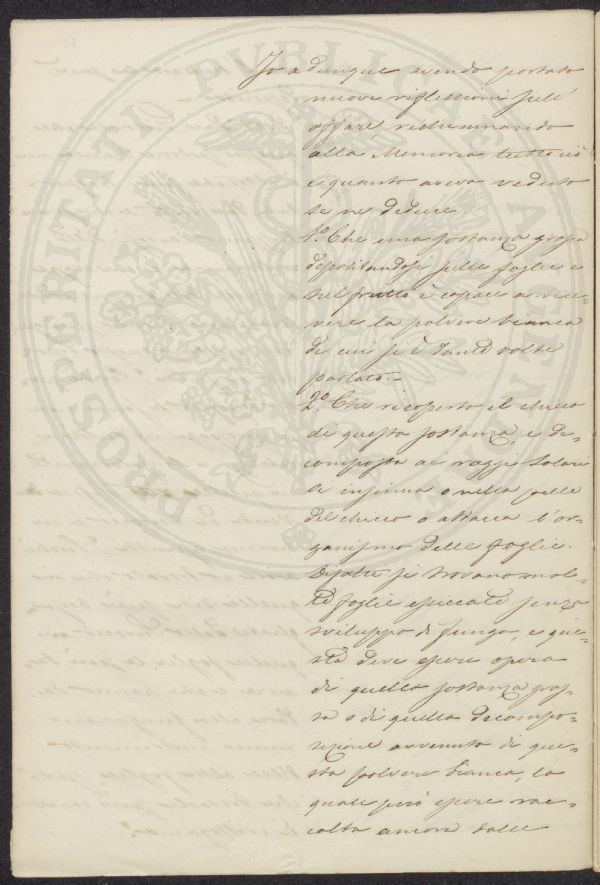 Io adunque avendo portato
nuove riflessioni sull'
affare richiamando
alla Memoria tutto ciò
e quanto aveva veduto
se ne deduce.
1.º Che una sostanza grassa
depositandosi sulle foglie e
sul frutto è capace a rice=
vere la polvere bianca
di cui si è tante volte
parlato.—
2.º Che ricoperto il chicco
di questa sostanza, e de=
composta ai raggi solari
si insinua o nella pelle
del chicco o attacca l'or=
ganismo delle foglie.
Difatti si trovano mol=
te foglie essiccate senza
sviluppo di fungo, e que=
sta deve essere opera
di quella sostanza gras=
sa o di quella decompo=
sizione avvenuta di que=
sta polvere bianca, la
quale può essere rac=
colta ancora dalle
PROSPERITATI PUBLICAE AUGENDAE